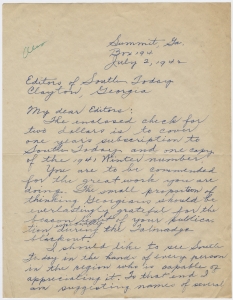 Summit, Ga.
Box 194
July 2, 1942
Editors of South Today
Clayton, Georgia
My dear Editors:
The enclosed check for
two dollars is to cover
one years subscription to
South Today and one copy
of the 1941 Winter number.
You are to be commended
for the great work you are
doing. The small proportion of
thinking Georgians should be
everlastingly grateful for the
beacon light of your publica-
tion during the Talmadge
blackout.
I should like to see South
Today in the hands of every person
in this region who is capable of
appreciating it. To that end I
am suggesting names of several